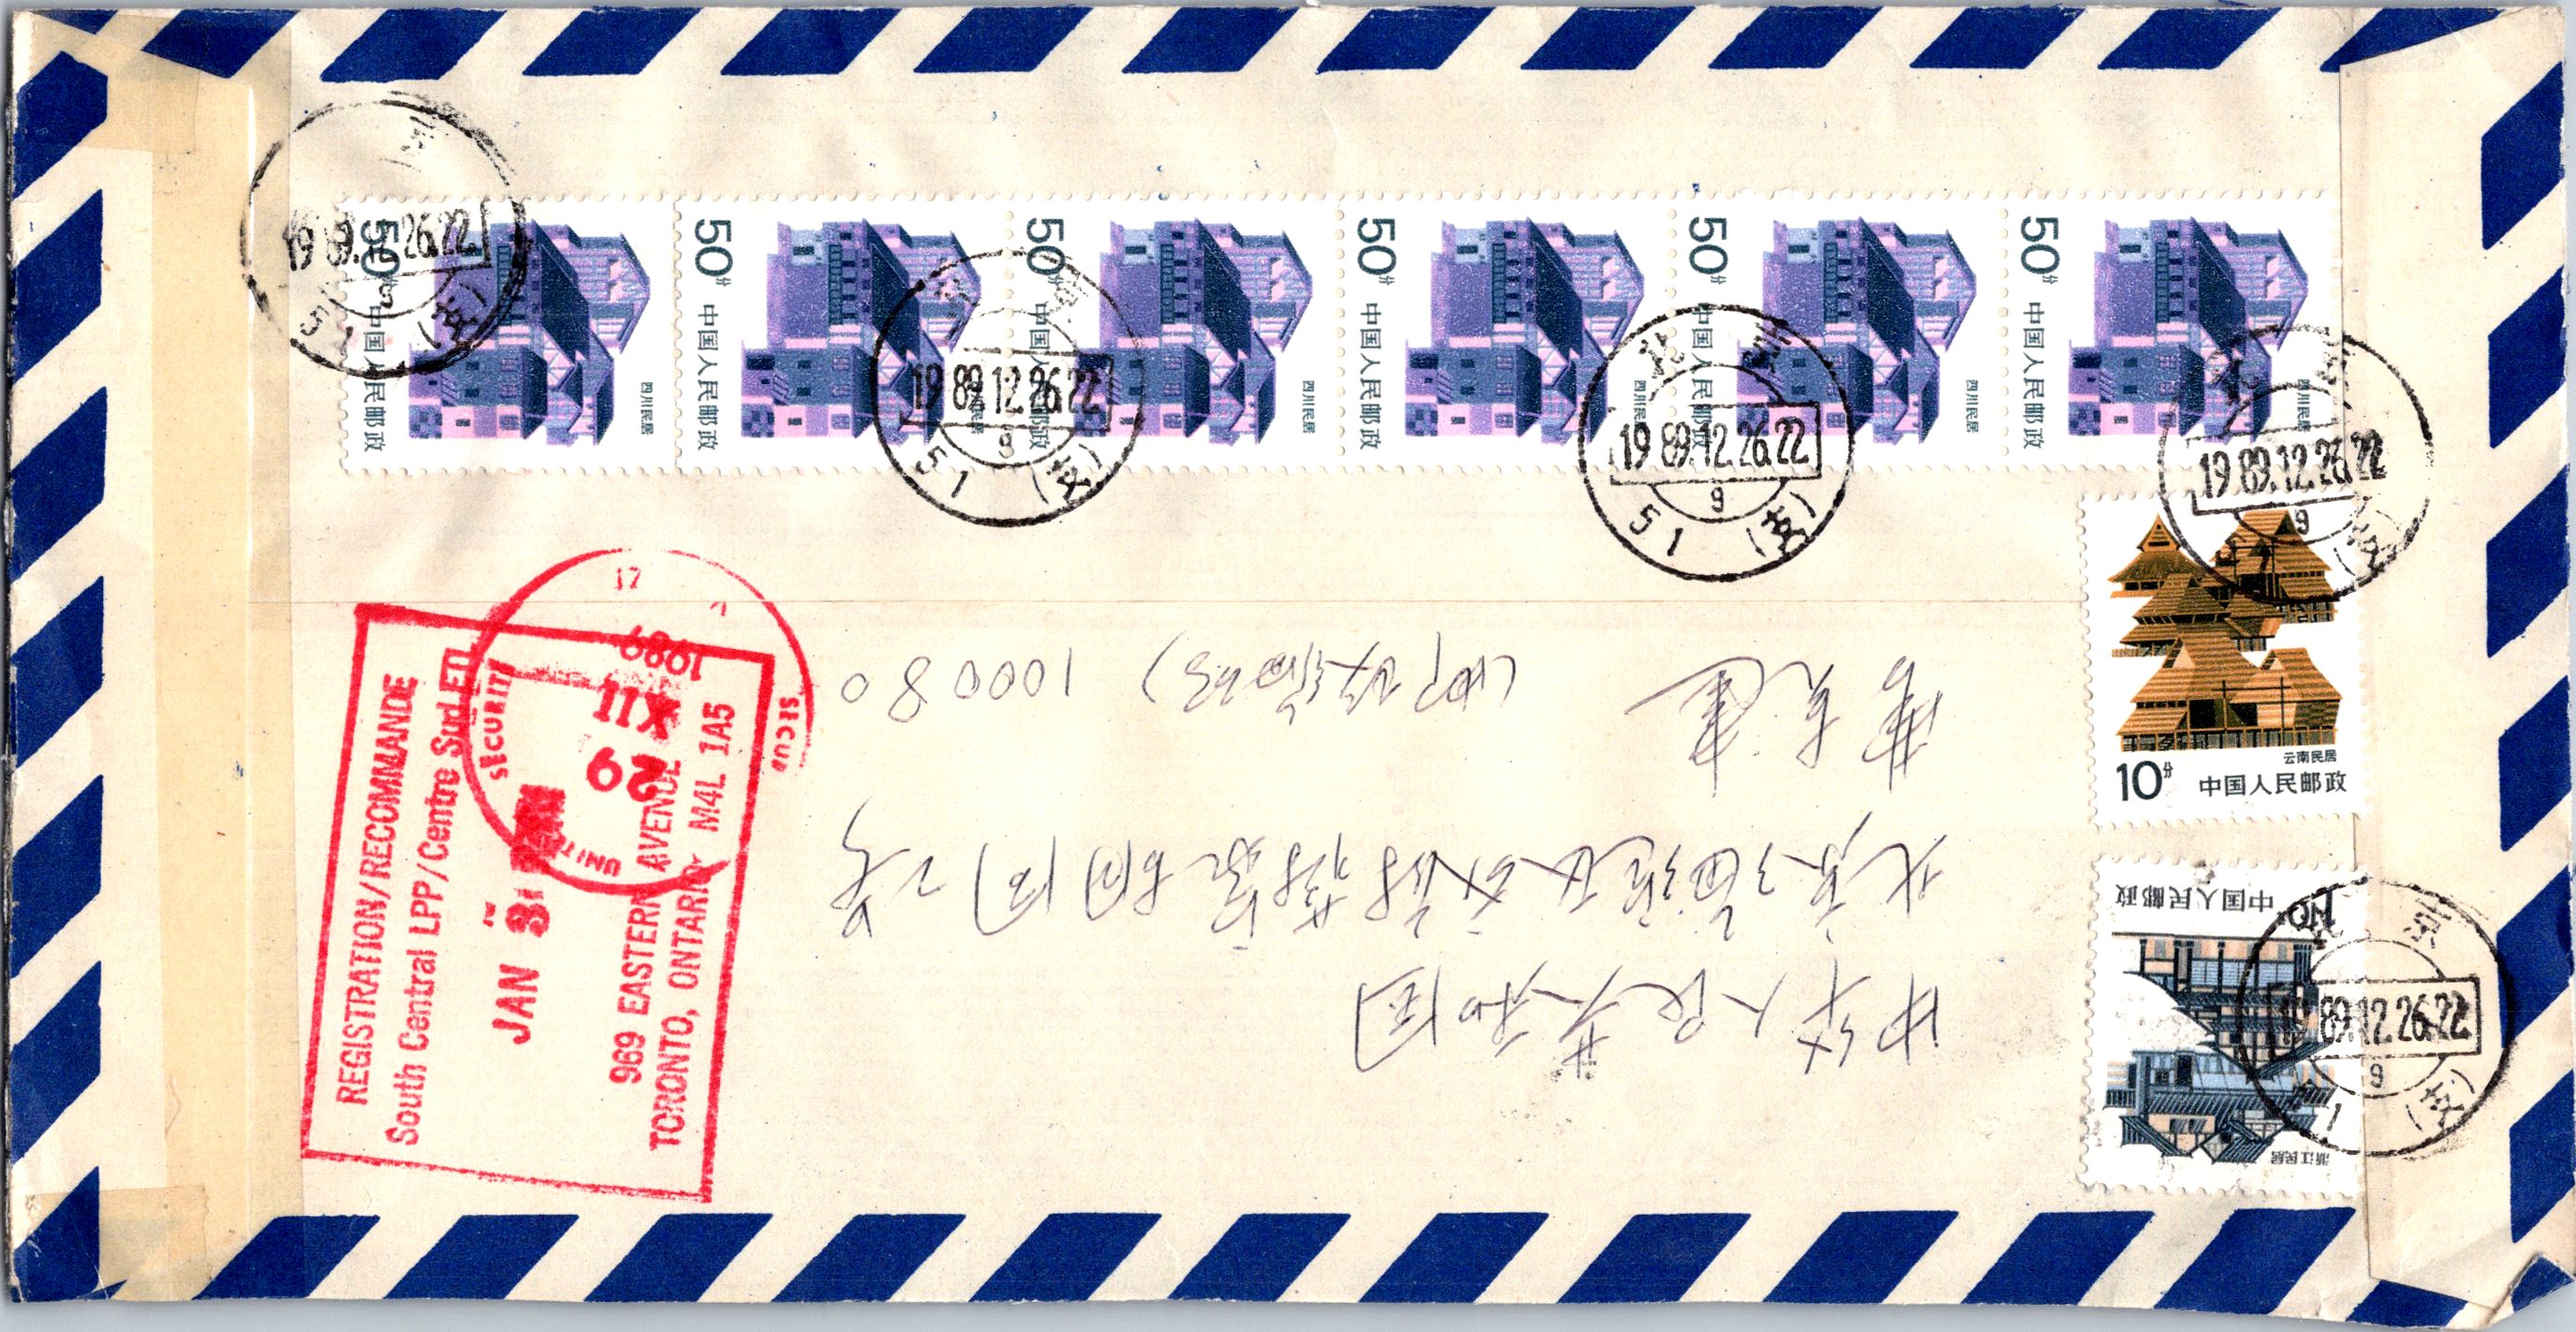 50分 中国人民邮政 四川民居
50分 中国人民邮政 四川民居
50分 中国人民邮政 四川民居
50分 中国人民邮政 四川民居
50分 中国人民邮政 四川民居
50分 中国人民邮政 四川民居
1989.12.26.22
51 (支)
北京
1989.12.26.22
9
51 (支)
北京
1989.12.26.22
9
51 (支)
北京
1989.12.26.22
9
(支)
云南民居
10分 中国人民邮政
浙江民居
10分 中国人民邮政
京
1989.12.26.22
9
1 (支)
中华人民共和国
北京
胡同 2号
(邮政编码) 100080
REGISTRATION/RECOMMANDE
South Central LPP/Centre Sud ETL
JAN 3
969 EASTERN AVENUE
TORONTO, ONTARIO M4L 1A5
SECURITY
UNIT
29
XII
1989
17